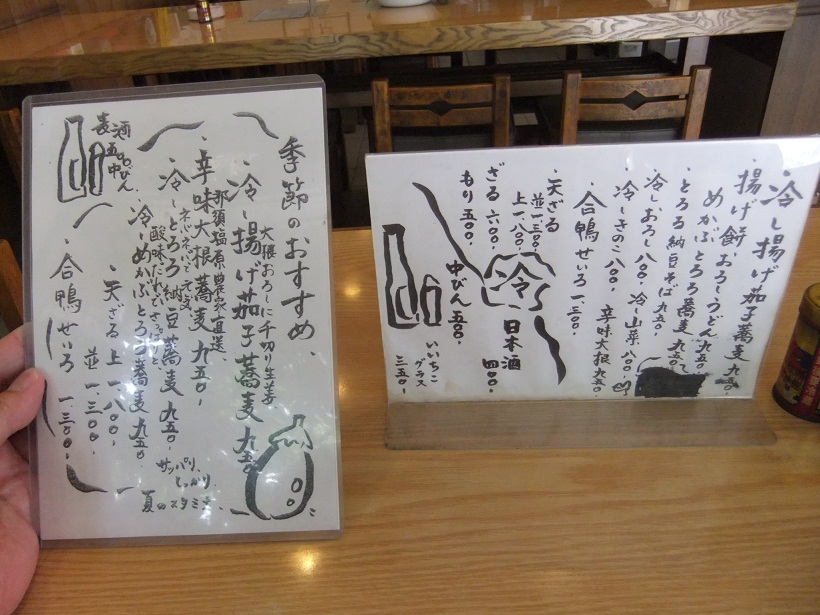 季節のおすすめ、
大根おろしに千切り生姜
・冷し揚げ茄子蕎麦九五〇
那須塩原農家直送
・辛味大根蕎麦九五〇.
ネバネバって元気
・冷しとろろ納豆蕎麦九五〇.
酸味だれでさっぱりと
・冷めかぶとろろ蕎麦九五〇.
・天ざる上一.八〇〇.
並一.三〇〇.
・合鴨せいろ一.三〇〇.
麦酒
五〇〇中びん
サッパリ、
しっかり
夏のスタミナ
・冷し揚げ茄子蕎麦九五〇.
・揚げ餅、おろしうどん九五〇
めかぶとろろ蕎麦九五〇
・とろろ納豆そば九五〇.
冷しおろし八〇〇. 冷し山菜八〇〇.
・冷しきのこ八〇〇. 辛味大根九五〇.
・合鴨せいろ一.三〇〇.
・天ざる
並一.三〇〇.
上一.八〇〇.
ざる六〇〇.
もり五〇〇.
冷
日本酒
四〇〇.
中びん五〇〇.
いいちこ
グラス
三五〇.